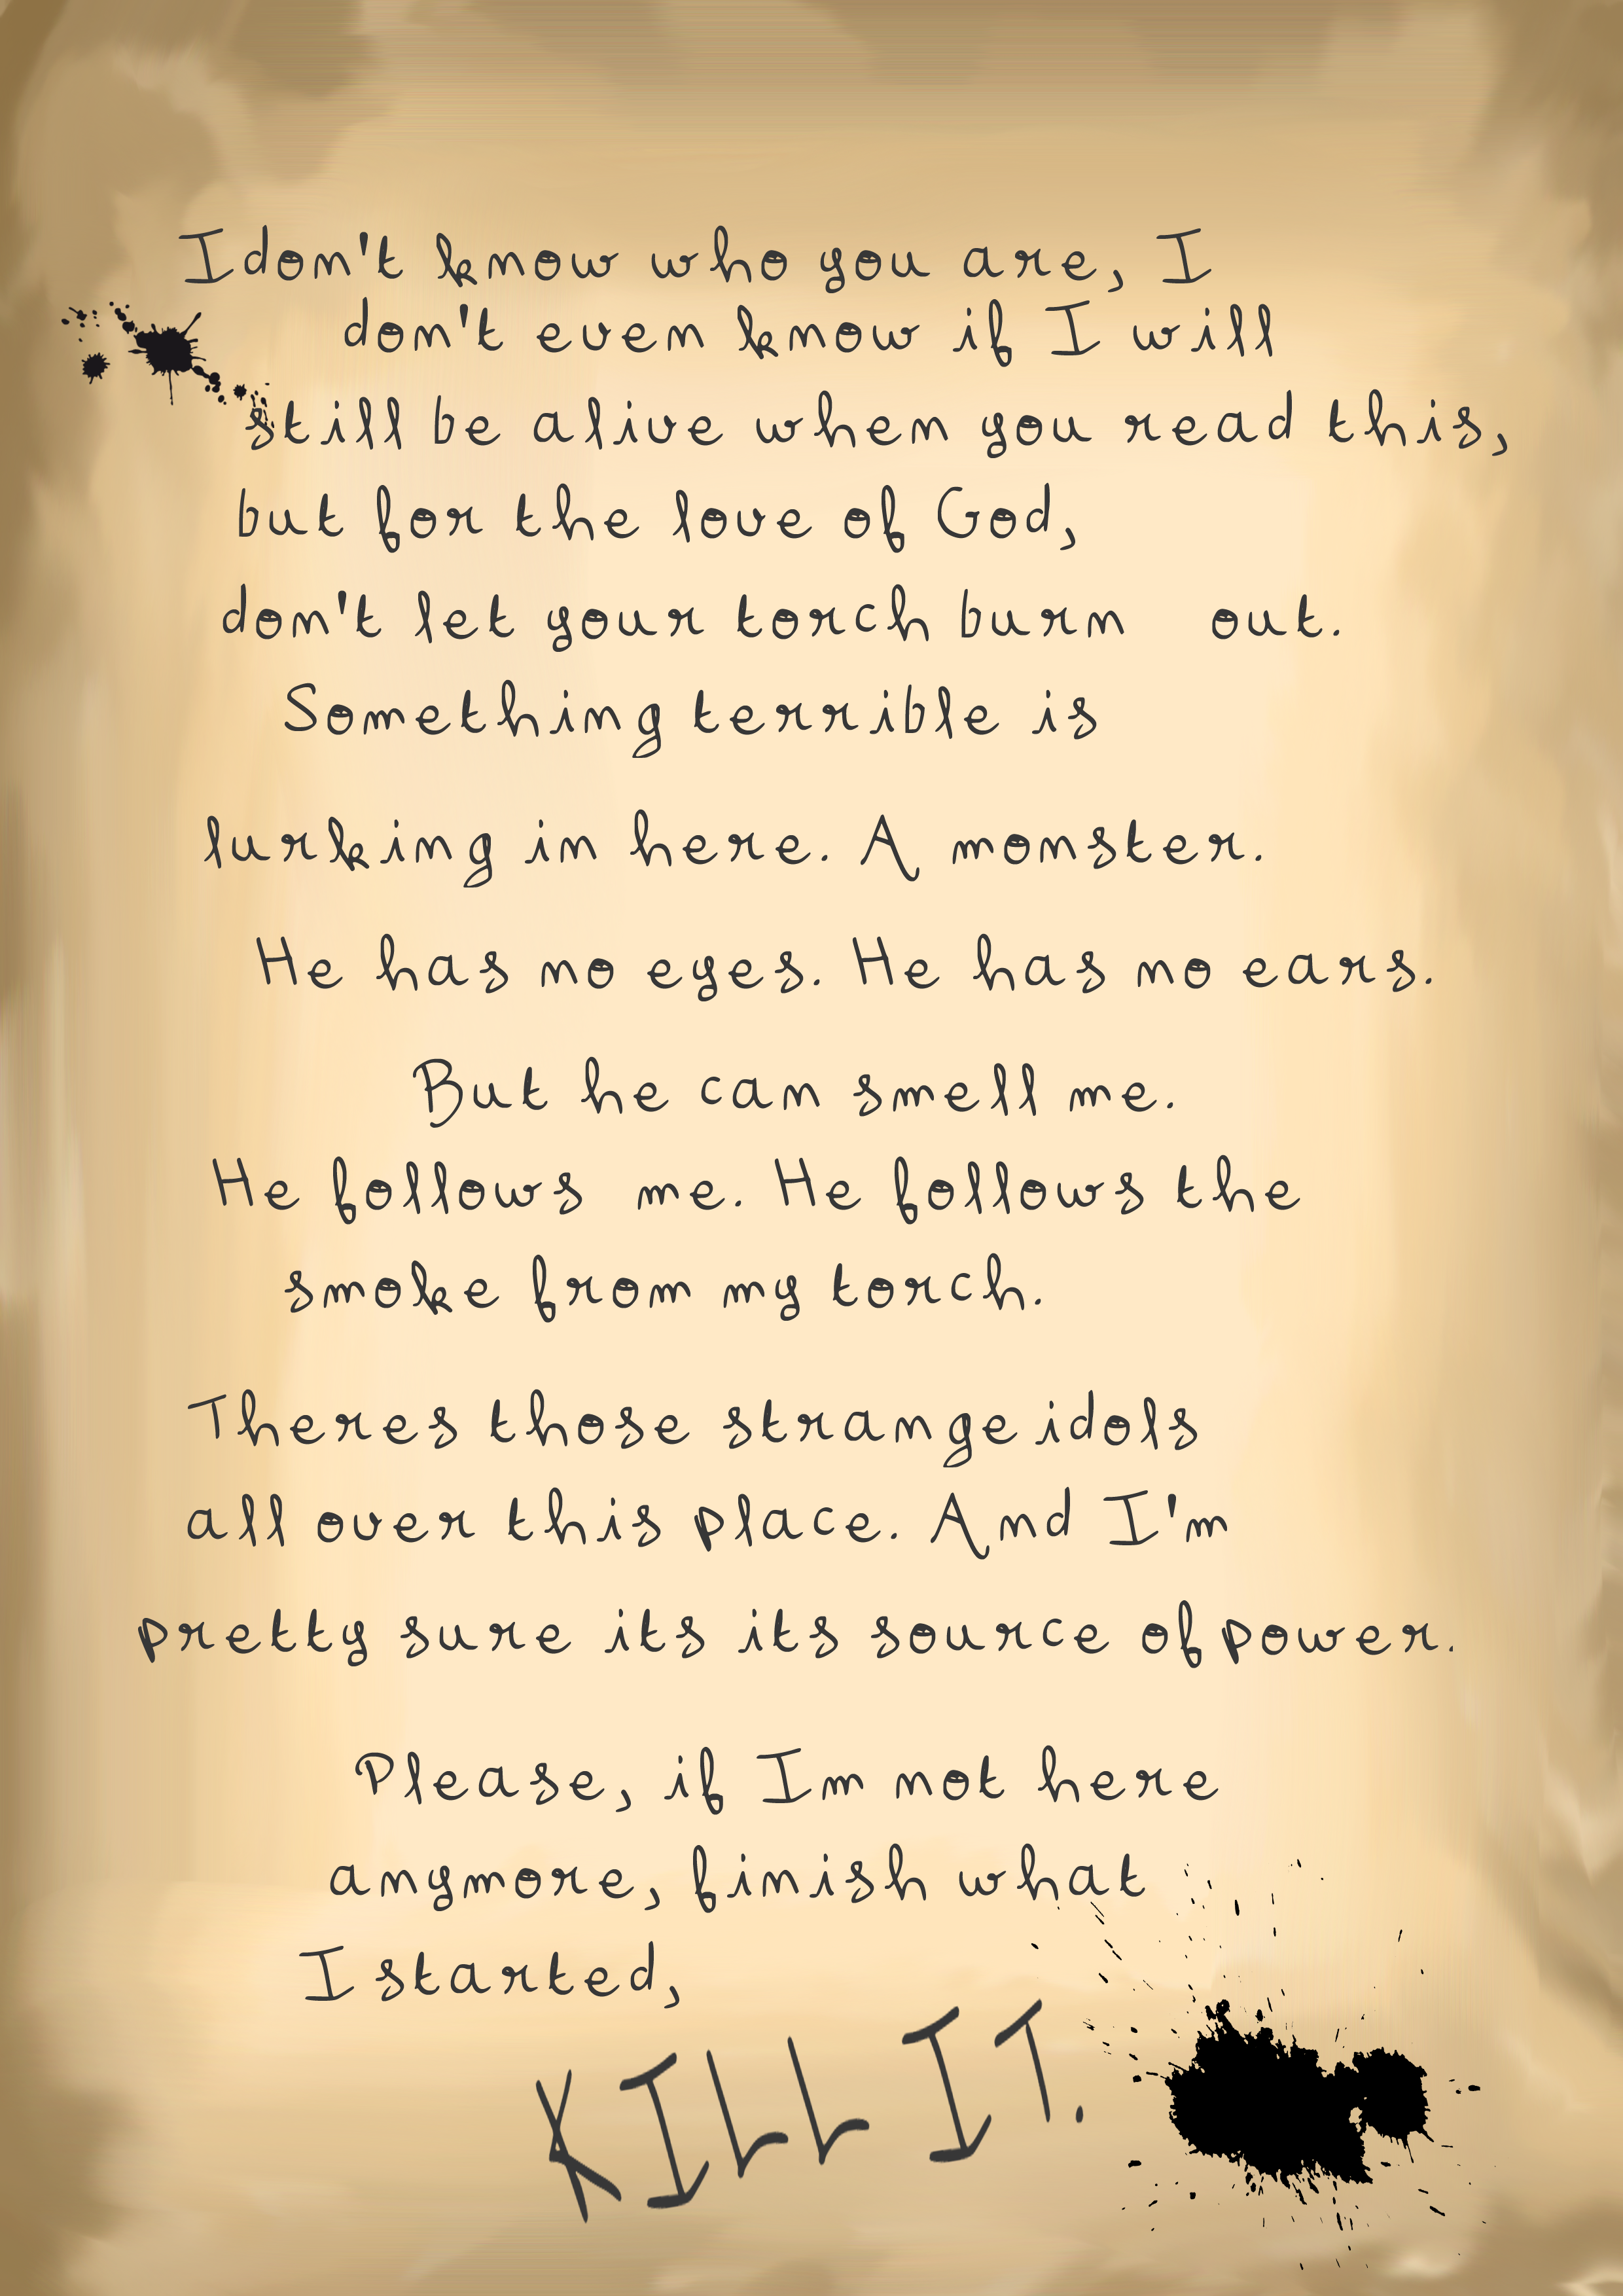 I don't know who you are, I
don't even know if I will
still be alive when you read this,
but for the love of God,
don't let your torch burn out.
Something terrible is
lurking in here. A monster.
He has no eyes. He has no ears.
But he can smell me.
He follows me. He follows the
smoke from my torch.
Theres those strange idols
all over this place. And I'm
pretty sure its its source of power.
Please, if Im not here
anymore, finish what
I started,
KILL IT.